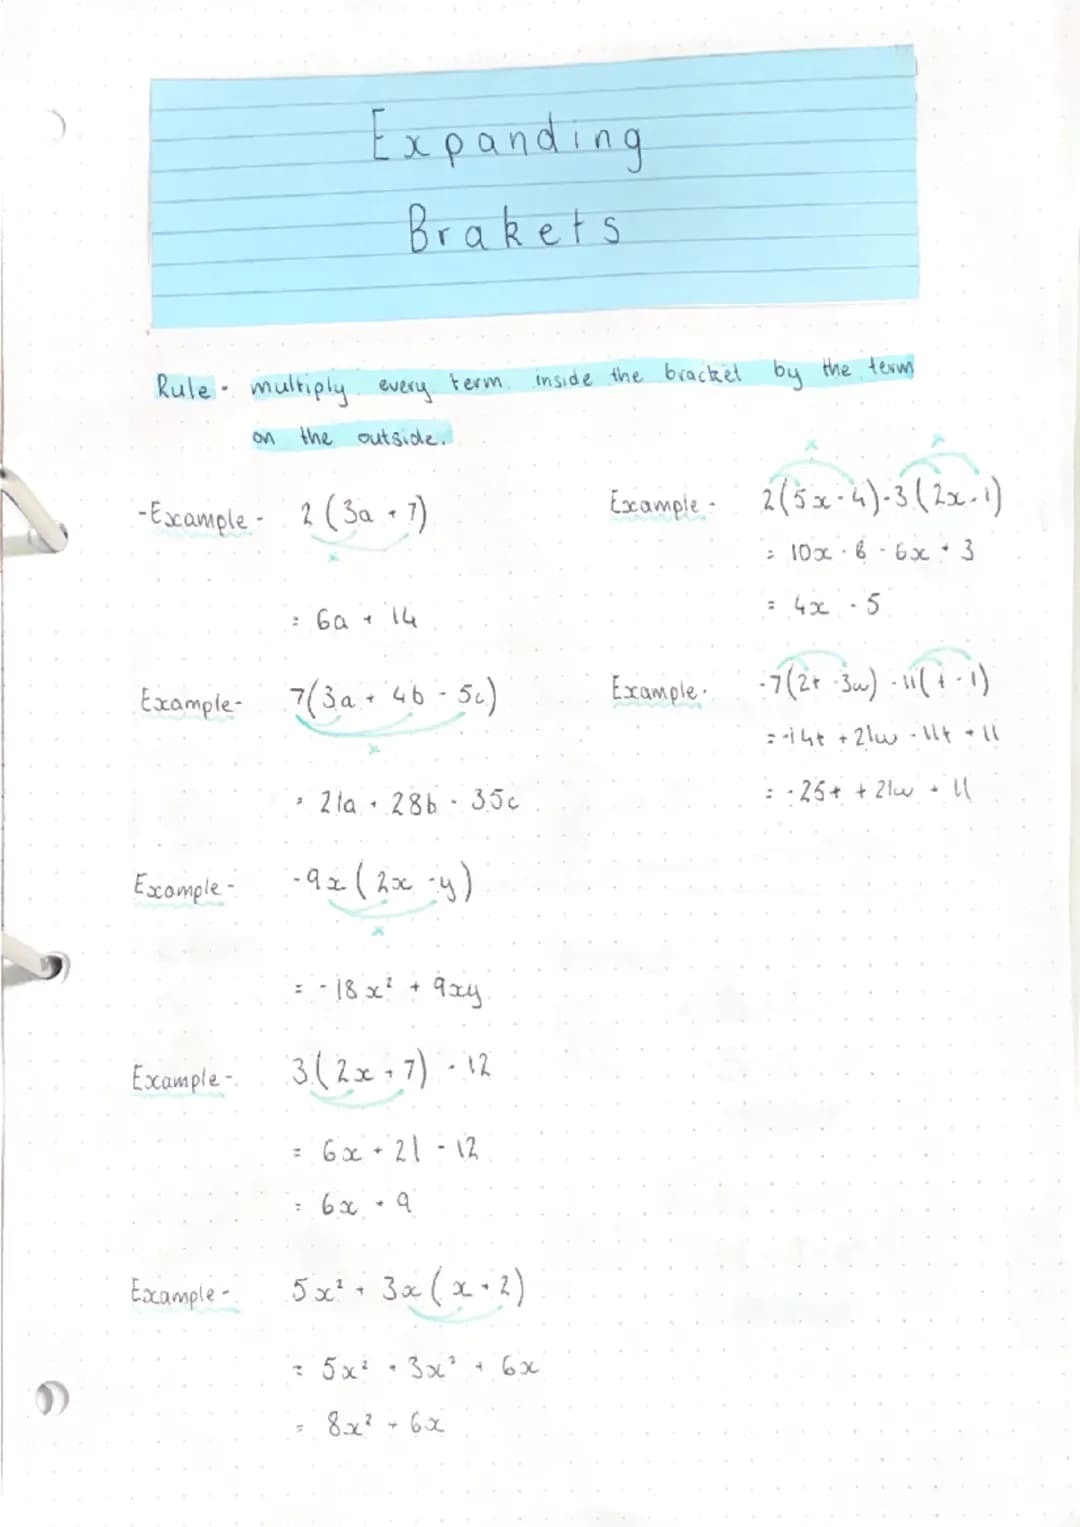 Expanding
Brakets
Rule - multiply every term inside the bracket by the term
on the outside.
-Example - 2(3a + 7)
= 6a + 14
Example- 7(3a + 4b - 5c)
= 21a + 28b - 35c
Example - -9x(2x -y)
= -18x² + 9xy
Example - 3(2x + 7) - 12
= 6x + 21 - 12
= 6x + 9
Example - 5x² + 3x(x + 2)
= 5x² + 3x² + 6x
= 8x² + 6x
Example - 2(5x - 4) - 3(2x - 1)
= 10x - 8 - 6x + 3
= 4x - 5
Example - -7(2t - 3w) - 11(t - 1)
= -14t + 21w - 11t + 11
= -25t + 21w + 11